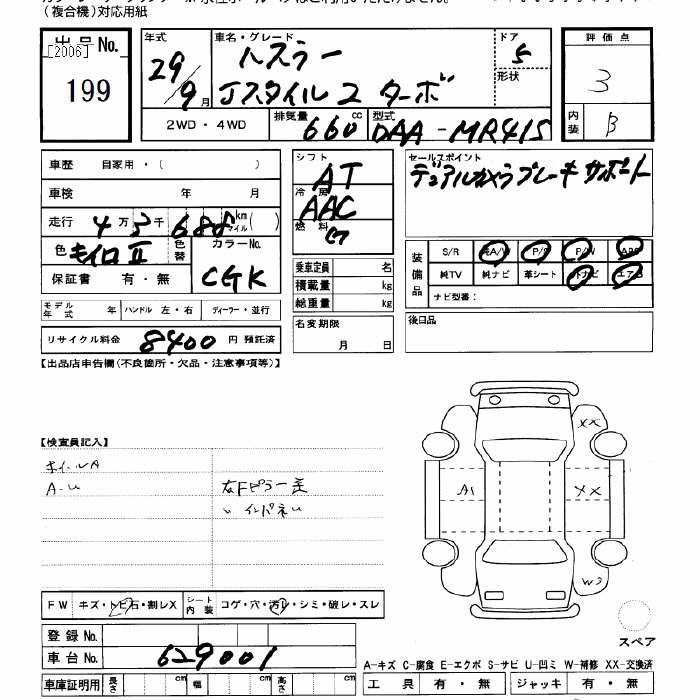 (複合機)対応用紙
出品No.
[2006]
199
年式 29/9月
車名・グレード ハスラー
Jスタイル2 ターボ
ドア 5
形状
評価点
3
内装 B
2WD・4WD 排気量 660 cc 型式 DAA-MR41S
車歴 自家用・( )
車検 年 月
走行 4万3千688 km マイル ( )
色 キイロII 色替 カラーNo. CGK
保証書 有・無
シフト AT
冷房 AAC
燃料
乗車定員 名
積載量 kg
総重量 kg
セールスポイント
デュアルカメラブレーキサポート
装備品 S/R 純A/W P/S P/W ABS
純TV 純ナビ 革シート エアB
ナビ型番:
モデル年式 年 ハンドル 左・右 ディーラー・並行
リサイクル料金 8400 円 預託済
名変期限 月 日
後日品
【出品店申告欄(不良箇所・欠品・注意事項等)】
【検査員記入】
ホイールA
A・U
右Fピラー歪
インパネ
XX
A1 XX
W3
スペア
FW キズ・トビ石・割レX シート内装 コゲ・穴・汚レ・シミ・破レ・スレ
登録No.
車台No. 629001
車庫証明用 長さ cm 幅 cm 高さ cm
A-キズ C-腐食 E-エクボ S-サビ U-凹ミ W-補修 XX-交換済
工具 有・無 ジャッキ 有・無